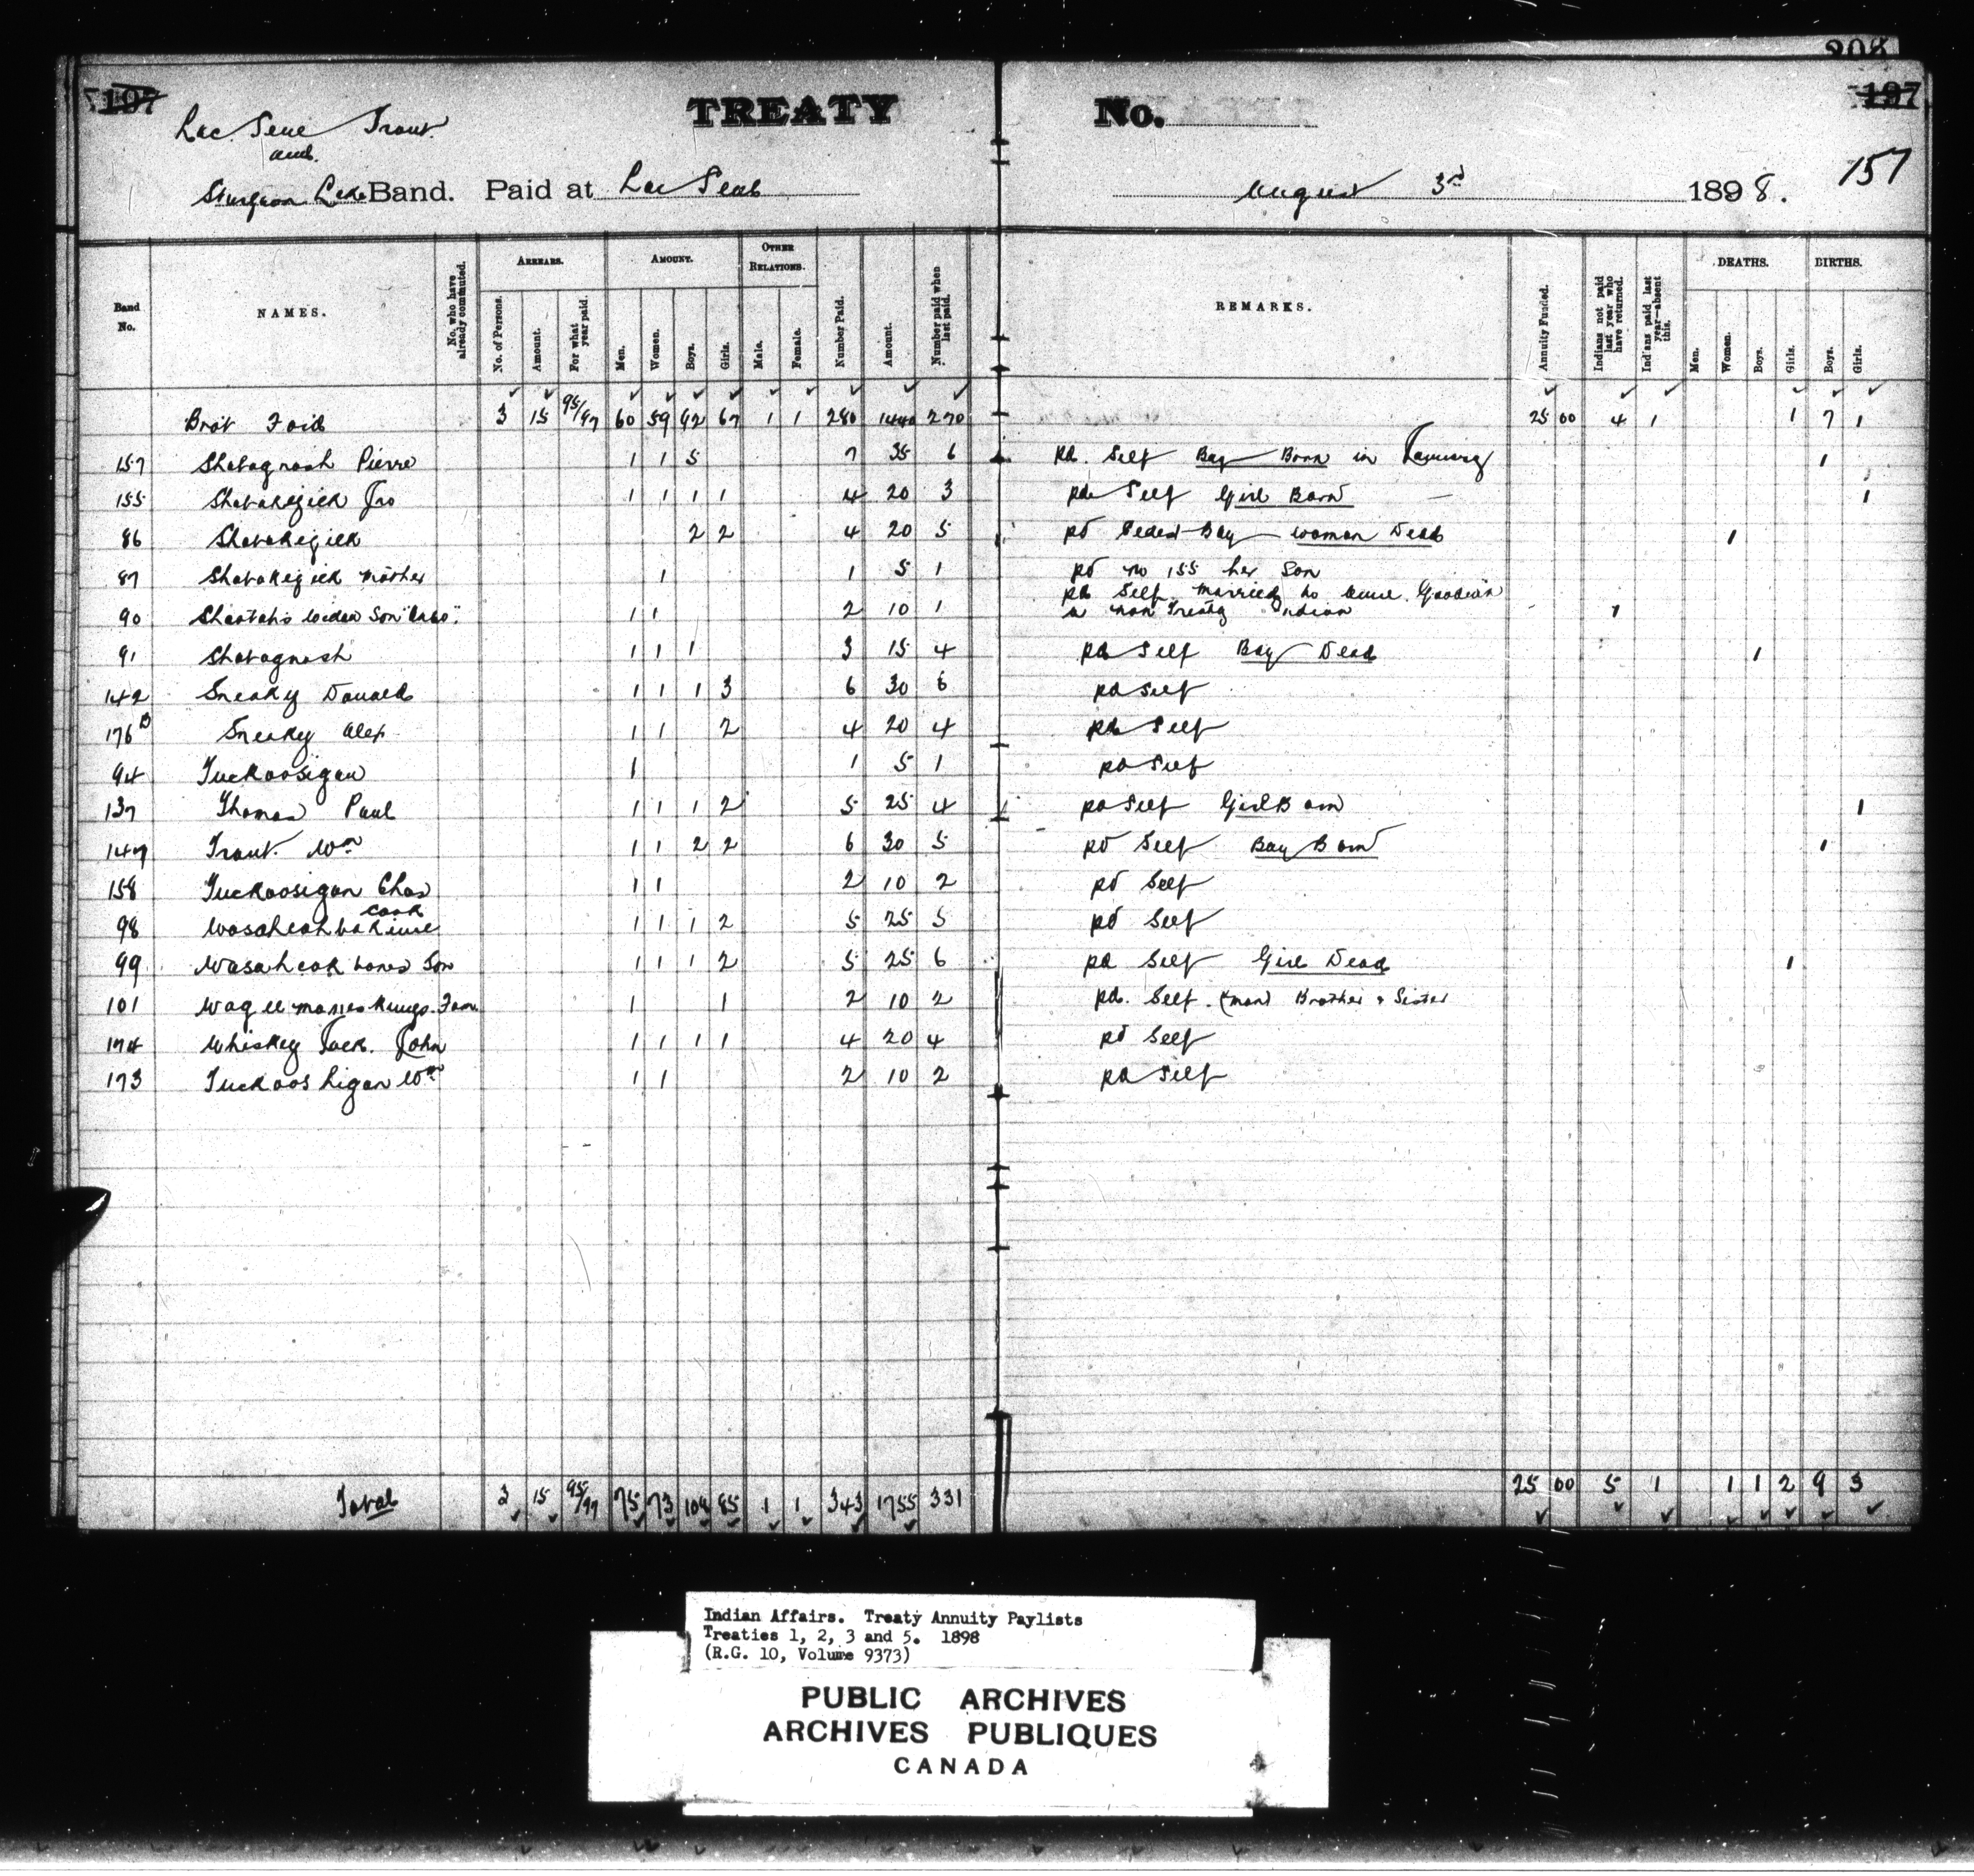 208
197
TREATY No.
197
Lac Seul Trout
and
157
Sturgeon Lake Band. Paid at Lac Seul August 3rd 1898.
Band No. NAMES. No. who have already commuted. ARREARS. No. of Persons. Amount. For what year paid. AMOUNT. Men. Women. Boys. Girls. OTHER RELATIONS. Male. Female. Number Paid. Amount. Number paid when last paid. REMARKS. Annuity Funded. Indians not paid last year who have returned. Indians paid last year—absent this. DEATHS. Men. Women. Boys. Girls. BIRTHS. Boys. Girls.
Brot Foid 3 15 95/97 60 59 92 67 1 1 280 1440 270 25 00 4 1 1 7 1
157 Shabagnash Pierre 1 1 5 7 35 6 pd. Self Boy Born in 1
155 Shabakejick Jno 1 1 1 1 4 20 3 pd Self Girl Born 1
86 Shabakejick 2 2 4 20 5 pd Boy woman Dead 1
87 Shabakejick Mother 1 1 5 1 pd no 155 her Son
90 Widow Son 1 1 2 10 1 pd Self married to a non Treaty Indian 1
91 Shabagnash 1 1 1 3 15 4 pd Self Boy Dead 1
142 Sneaky Donald 1 1 1 3 6 30 6 pd Self
176 B Sneaky Alex 1 1 2 4 20 4 pd Self
94 Tuckoosigan 1 1 5 1 pd Self
137 Thomas Paul 1 1 1 2 5 25 4 pd Self Girl Born 1
147 Trout Wm 1 1 2 2 6 30 5 pd Self Boy Born 1
158 Tuckoosigan Chas 1 1 2 10 2 pd Self
98 1 1 1 2 5 25 5 pd Self
99 Son 1 1 1 2 5 25 6 pd Self Girl Dead 1
101 1 1 2 10 2 pd. Self (man) Brother & Sister
174 Whiskey Jack. John 1 1 1 1 4 20 4 pd Self
173 Tuckooshigan Wm 1 1 2 10 2 pd Self
Total 3 15 95/97 75 73 108 85 1 1 343 1755 331 25 00 5 1 1 1 2 9 3
Indian Affairs. Treaty Annuity Paylists
Treaties 1, 2, 3 and 5. 1898
(R.G. 10, Volume 9373)
PUBLIC ARCHIVES
ARCHIVES PUBLIQUES
CANADA